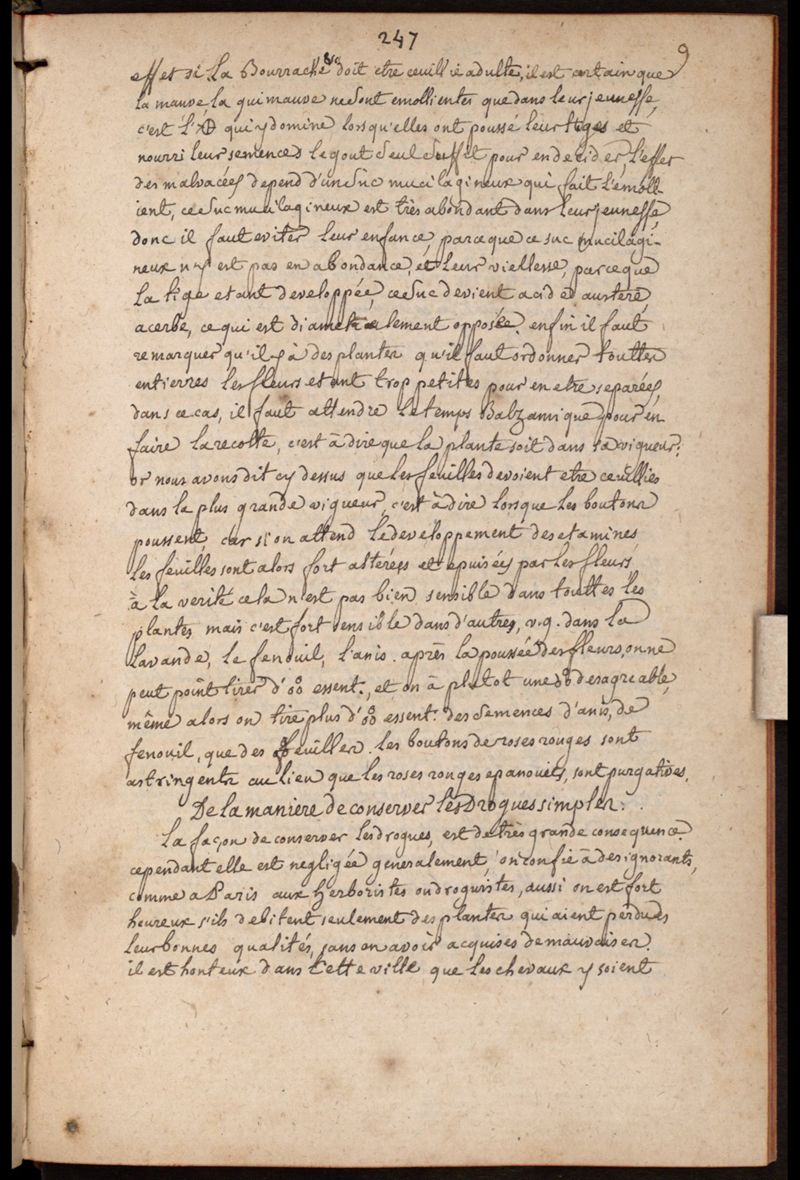 247
9
effet si la Bourrache &c doit etre ceuillie adulte, il est certain que
la mauve la guimauve ne sont emollientes que dans leur jeunesse,
c'est l' qui y domine lorsqu'elles ont poussé leur tiges et
nourri leur semences le gout seul suffit pour en decider, l'effet
des malvacées depend d'un suc mucilagineux qui fait l'emoll-
ient, ce suc mucilagineux est très abondant dans leur jeunesse,
donc il faut eviter leur enfance, parceque ce suc mucilagi-
neux n'y est pas en abondance, et leur viellesse, parceque
la tige etant developpée, ce suc devient acid et austere,
acerbe, ce qui est diametralement opposée. enfin il faut
remarquer qu'il y à des plantes qu'il faut ordonner touttes
entierres les fleurs etant trop petites pour en etre separées,
dans ce cas, il faut attendre le temps Balzamique pour en
faire la recolte, c'est à dire que la plante soit dans sa vigueur:
or nous avons dit cy dessus que les feuilles devoient etre ceuillies
dans la plus grande vigueur, c'est à dire lorsque les boutons
poussent, car si on attend le developpement des etamines
les feuilles sont alors fort alterées et epuisées par les fleurs,
à la verité cela n'est pas bien sensible dans touttes les
plantes mais c'est fort sensible dans d'autres, v.g. dans la
lavande, le fenouil, l'anis. après la poussée des fleurs, on ne
peut point tirer d' essent:, et on à plutot une desagreable,
même alors on tire plus d' essent: des semences d'anis, de
fenouil, que des feuilles. les boutons de roses rouges sont
astringents au lieu que les roses rouges epanouies, sont purgatives.
De la maniere de conserver les Drogues simples.
la façon de conserver les drogues, est de très grande consequence.
cependant elle est negligée generalement, on confie à des ignorants,
comme a Paris aux herboristes ou droguistes, aussi on est fort
heureux s'ils debitent seulement des plantes qui aient perdues
leur bonnes qualités, sans en avoir acquises de mauvaises.
il est honteux dans cette ville que les chevaux y soient